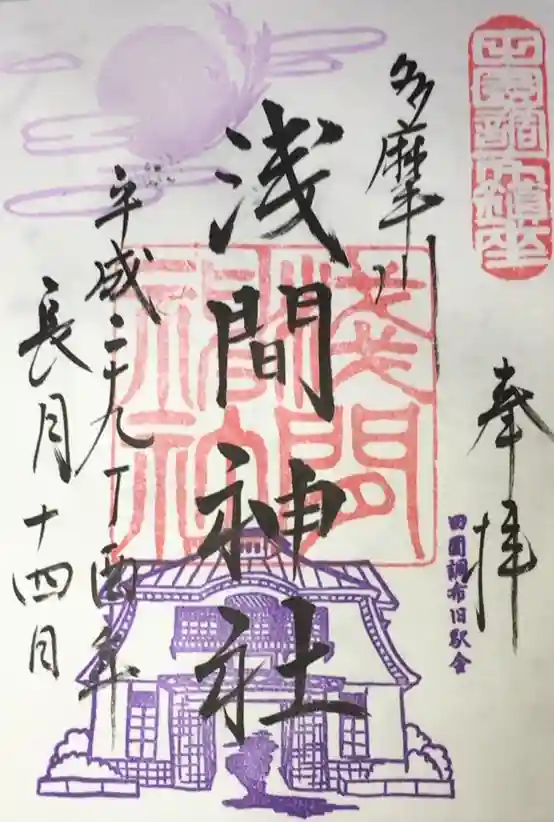 田園調布鎮座
奉拝
田園調布旧駅舎
多摩川
浅間神社
浅間神社
平成二十九丁酉年
長月十四日